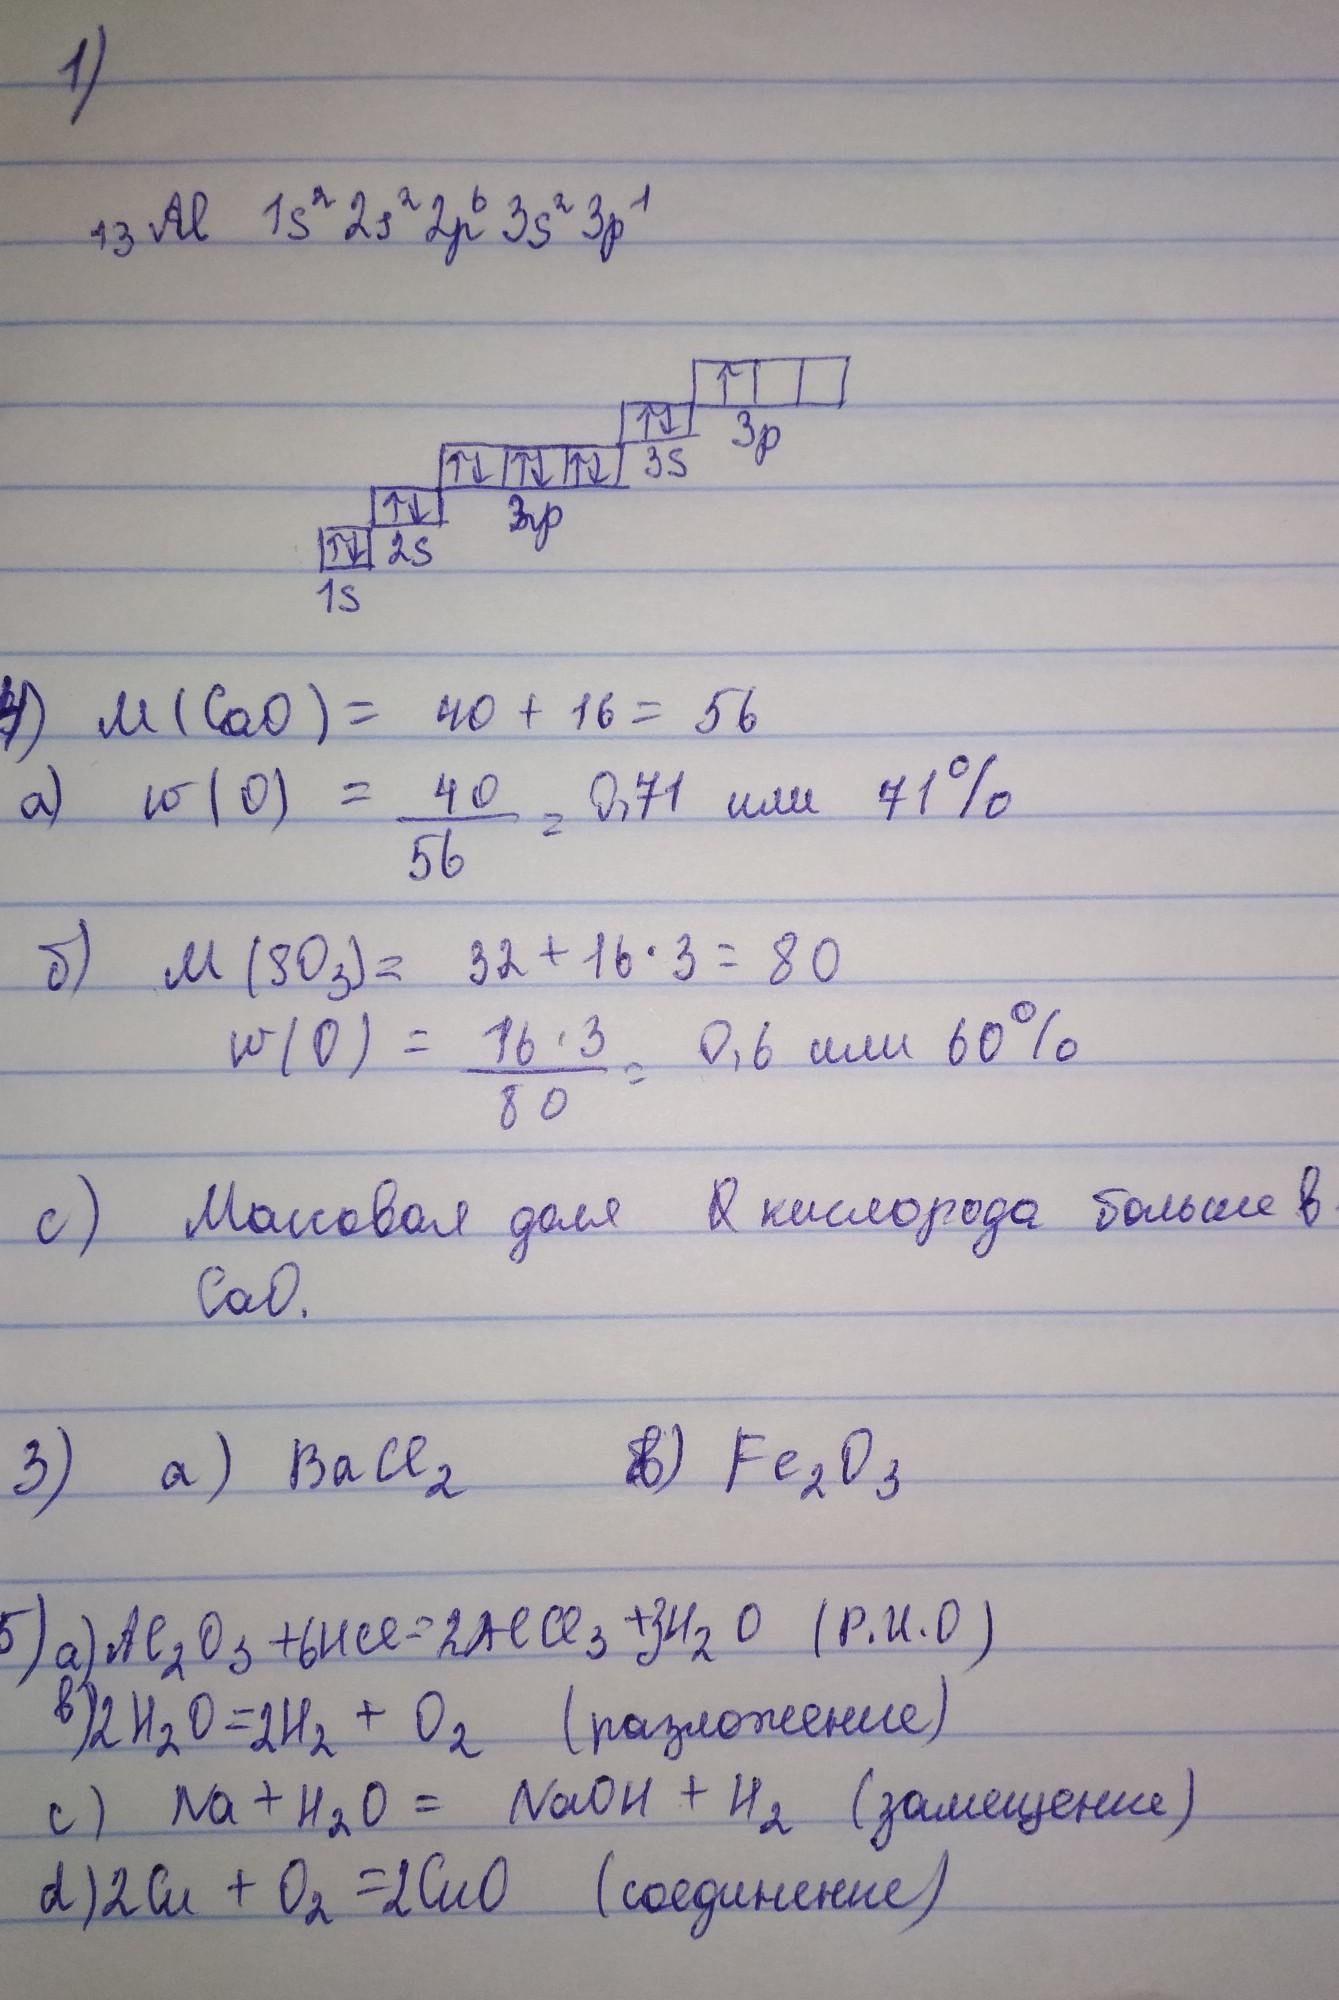 1)
₁₃Al 1s² 2s² 2p⁶ 3s² 3p¹
↑ 3p
↑↓ 3s
↑↓ ↑↓ ↑↓ 3p
↑↓ 2s
↑↓ 1s
4) M(CaO) = 40 + 16 = 56
а) w(O) = 40/56 = 0,71 или 71%
б) M(SO₃) = 32 + 16·3 = 80
w(O) = 16·3/80 = 0,6 или 60%
c) Массовая доля кислорода больше в
CaO.
3) а) BaCl₂ в) Fe₂O₃
5) a) Al₂O₃ + 6HCl = 2AlCl₃ + 3H₂O (Р.И.О)
в) 2H₂O = 2H₂ + O₂ (разложение)
c) Na + H₂O = NaOH + H₂ (замещение)
d) 2Cu + O₂ = 2CuO (соединение)